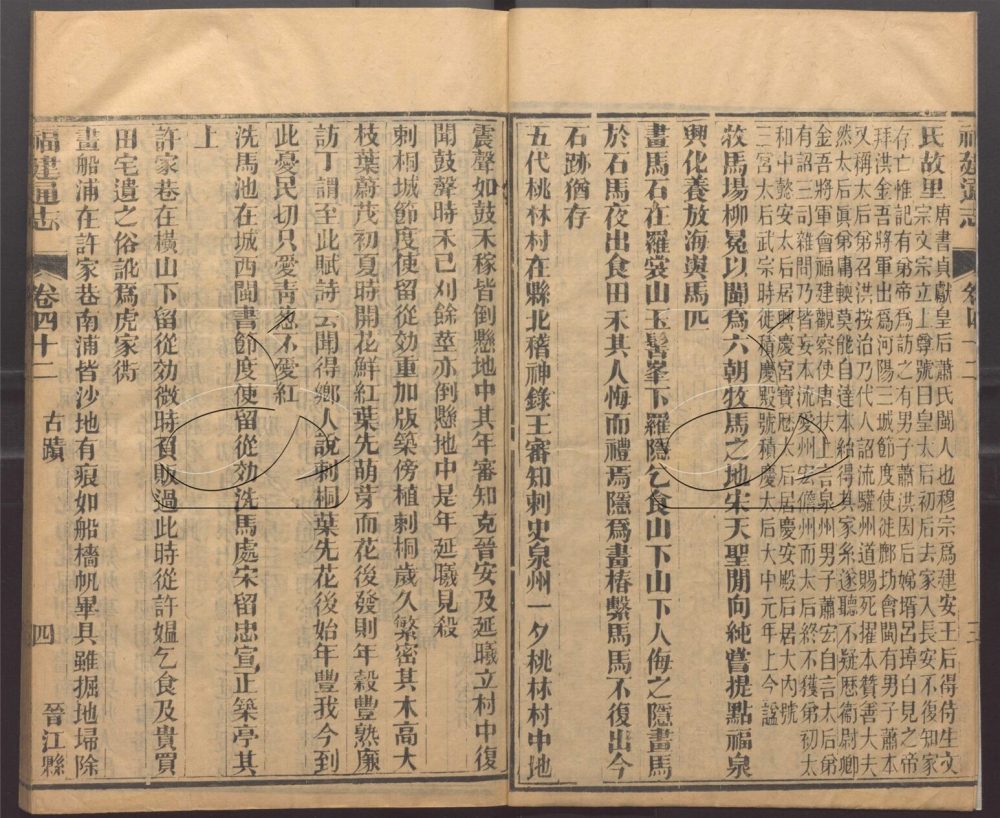 福建通志 卷四十二 三
氏故里
唐書貞獻皇后蕭氏閩人也穆宗爲建安王后得侍生文
宗文宗立上尊號曰皇太后初后去家入長安不復知家
存亡惟記有弟帝爲訪之有男子蕭洪因后姊壻呂璋白見之帝
拜洪金吾將軍出爲河陽三城節度使徙鄜坊會閩有男子蕭本
又稱太后弟召洪按治乃代人詔流驩州道賜死擢本贊善大夫
然太后眞弟庸輭莫能自達本紿得其家系遂聽不疑歷衞尉卿
金吾將軍會福建觀察使唐扶上言泉州男子蕭宏自言太后弟
有詔三司雜問乃皆妄本流愛州宏儋州而太后終不獲弟初太
和中懿安太后居興慶宮寶歷太后居慶安殿后居大內號
三宮太后武宗時徙積慶殿號積慶太后大中元年上今謚
牧馬場柳冕以閩爲六朝牧馬之地宋天聖閒向純嘗提點福泉
興化養放海與馬匹
畫馬石在羅裳山玉髻峯下羅隱乞食山下山下人侮之隱畫馬
於石馬夜出食田禾其人悔而禮焉隱爲畫樁繫馬馬不復出今
石跡猶存
五代桃林村在縣北稽神錄王審知刺史泉州一夕桃林村中地
震聲如鼓禾稼皆倒懸地中其年審知克晉安及延曦立村中復
聞鼓聲時禾已刈餘莖亦倒懸地中是年延曦見殺
刺桐城節度使留從効重加版築傍植刺桐歲久繁密其木高大
枝葉蔚茂初夏時開花鮮紅葉先萌芽而花後發則年穀豐熟廉
訪丁謂至此賦詩云聞得鄉人說刺桐葉先花後始年豐我今到
此憂民切只愛靑葱不愛紅
洗馬池在城西閩書節度使留從効洗馬處宋留忠宣正築亭其
上
許家巷在橫山下留從効微時負販過此時從許媼乞食及貴買
田宅遺之俗訛爲虎家衖
畫船浦在許家巷南浦皆沙地有痕如船檣帆畢具雖掘地埽除
福建通志 卷四十二 古蹟 四 晉江縣